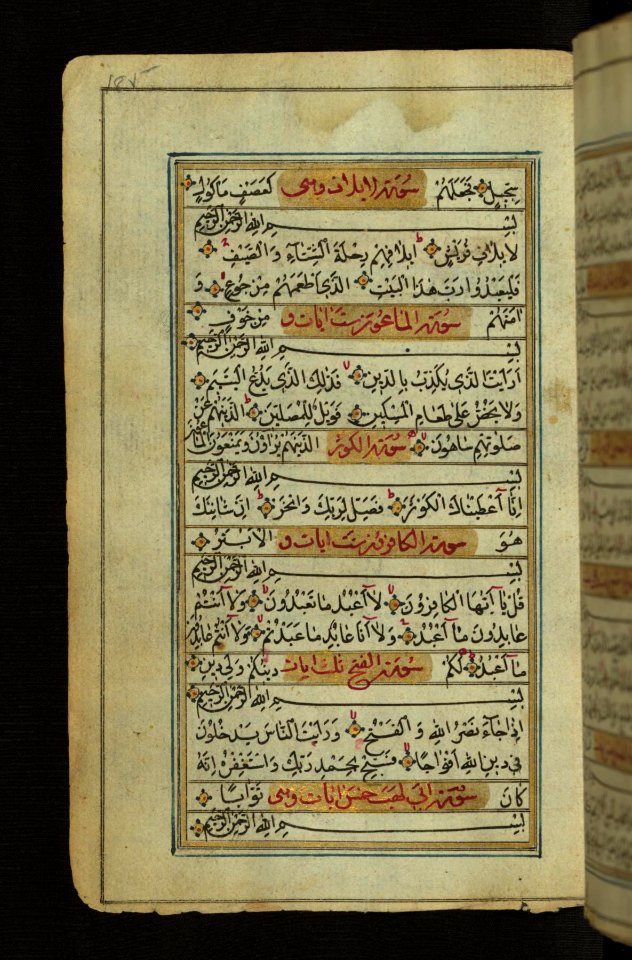 سِجِّيلٍ فَجَعَلَهُمْ سورة الايلاف وهى كَعَصْفٍ مَاكُولٍ
بِسْمِ اللهِ الرَّحْمٰنِ الرَّحِيمِ
لِايلَافِ قُرَيْشٍ ايلَافِهِمْ رِحْلَةَ الشِّتَآءِ وَالصَّيْفِ
فَلْيَعْبُدُوا رَبَّ هٰذَا الْبَيْتِ الَّذِى اَطْعَمَهُمْ مِنْ جُوعٍ وَ
اٰمَنَهُمْ سورة الماعون ست ايات و مِنْ خَوْفٍ
بِسْمِ اللهِ الرَّحْمٰنِ الرَّحِيمِ
اَرَاَيْتَ الَّذِى يُكَذِّبُ بِالدِّينِ فَذٰلِكَ الَّذِى يَدُعُّ الْيَتِيمَ
وَلَا يَحُضُّ عَلٰى طَعَامِ الْمِسْكِينِ فَوَيْلٌ لِلْمُصَلِّينَ الَّذِينَهُمْ عَنْ
صَلٰوتِهِمْ سَاهُونَ سورة الكوثر الَّذِينَهُمْ يُرَاؤُنَ وَيَمْنَعُونَ الْمَاعُونَ
بِسْمِ اللهِ الرَّحْمٰنِ الرَّحِيمِ
اِنَّا اَعْطَيْنَاكَ الْكَوْثَرَ فَصَلِّ لِرَبِّكَ وَانْحَرْ اِنَّ شَانِئَكَ
هُوَ سورة الكافرون ست ايات و الْاَبْتَرُ
بِسْمِ اللهِ الرَّحْمٰنِ الرَّحِيمِ
قُلْ يَا اَيُّهَا الْكَافِرُونَ لَا اَعْبُدُ مَا تَعْبُدُونَ وَلَا اَنْتُمْ
عَابِدُونَ مَا اَعْبُدُ وَلَا اَنَا عَابِدٌ مَا عَبَدْتُمْ وَلَا اَنْتُمْ عَابِدُونَ
مَا اَعْبُدُ لَكُمْ سورة الفتح ثلث ايات دِينُكُمْ وَلِىَ دِينِ
بِسْمِ اللهِ الرَّحْمٰنِ الرَّحِيمِ
اِذَا جَآءَ نَصْرُ اللهِ وَالْفَتْحُ وَرَاَيْتَ النَّاسَ يَدْخُلُونَ
فِى دِينِ اللهِ اَفْوَاجًا فَسَبِّحْ بِحَمْدِ رَبِّكَ وَاسْتَغْفِرْهُ اِنَّهُ
كَانَ سورة ابى لهب خمس ايات وهى تَوَّابًا
بِسْمِ اللهِ الرَّحْمٰنِ الرَّحِيمِ